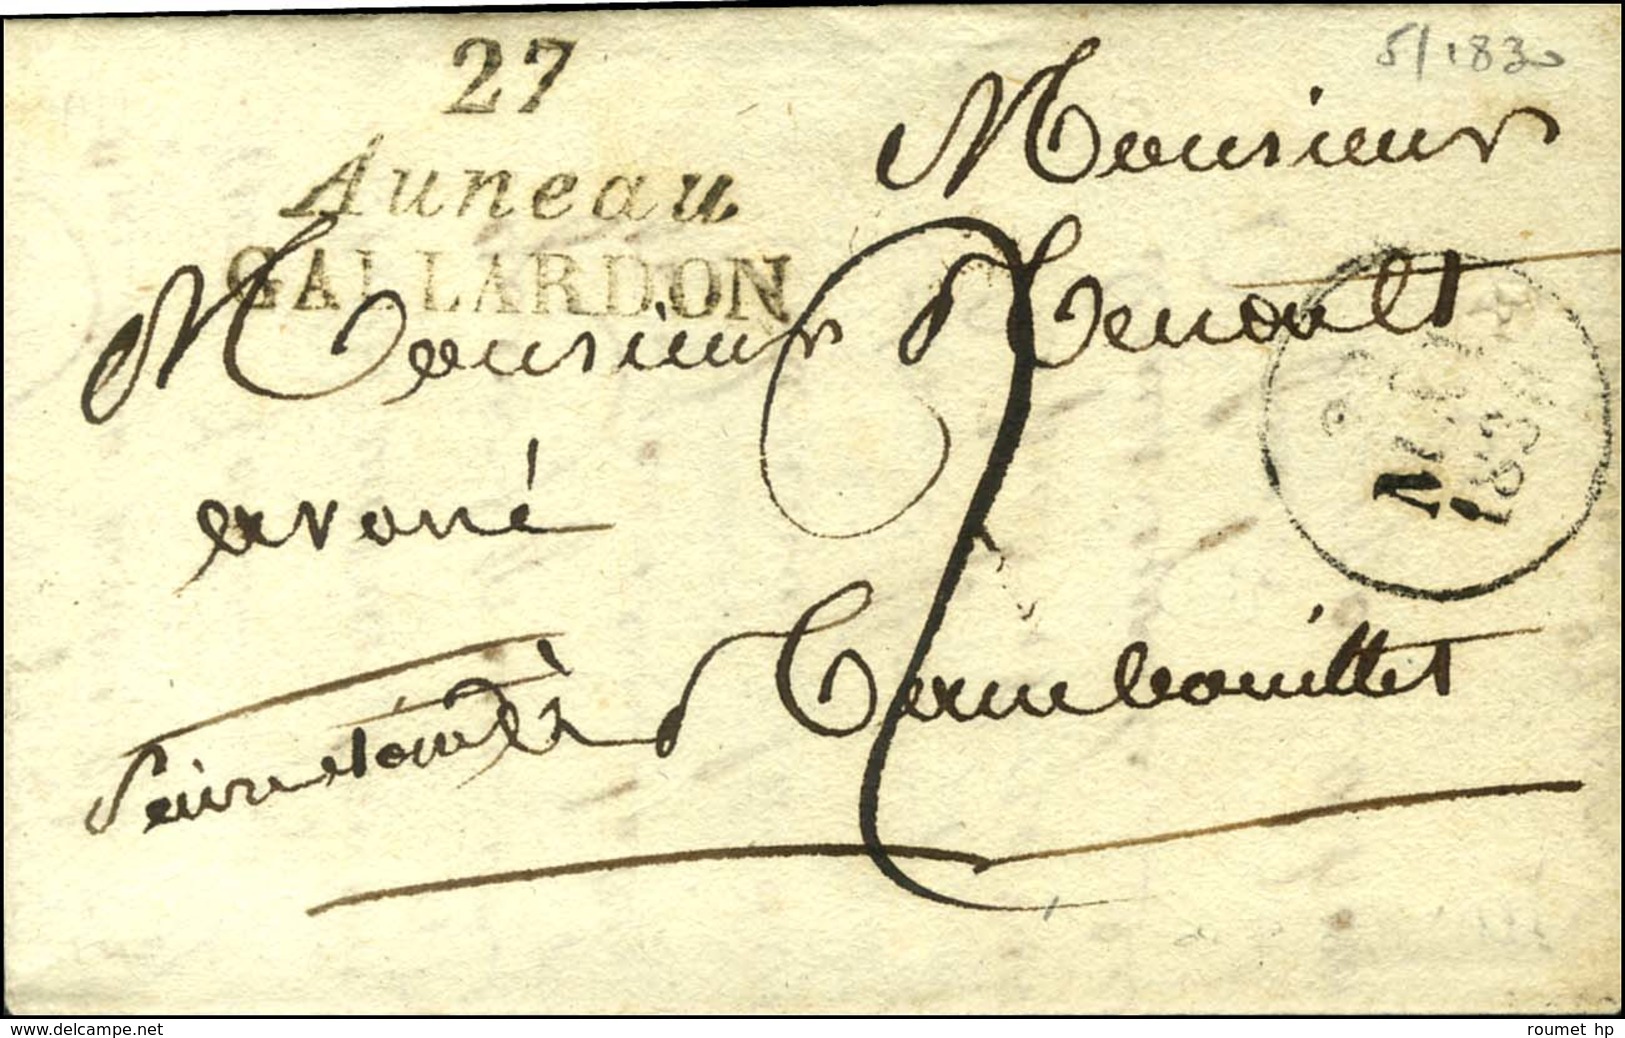 5/1830
27
Auneau
GALLARDON
Monsieur
Monsieur Renoult
avoué
Rambouillet
MAI
1830
www.delcampe.net
roumet hp